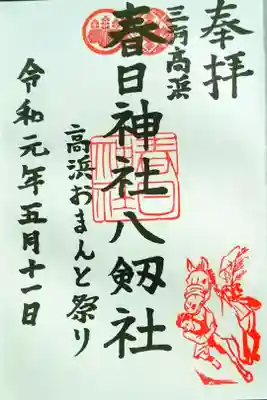 奉拝
三河高浜
春日神社八剱社
高浜おまんと祭り
令和元年五月十一日